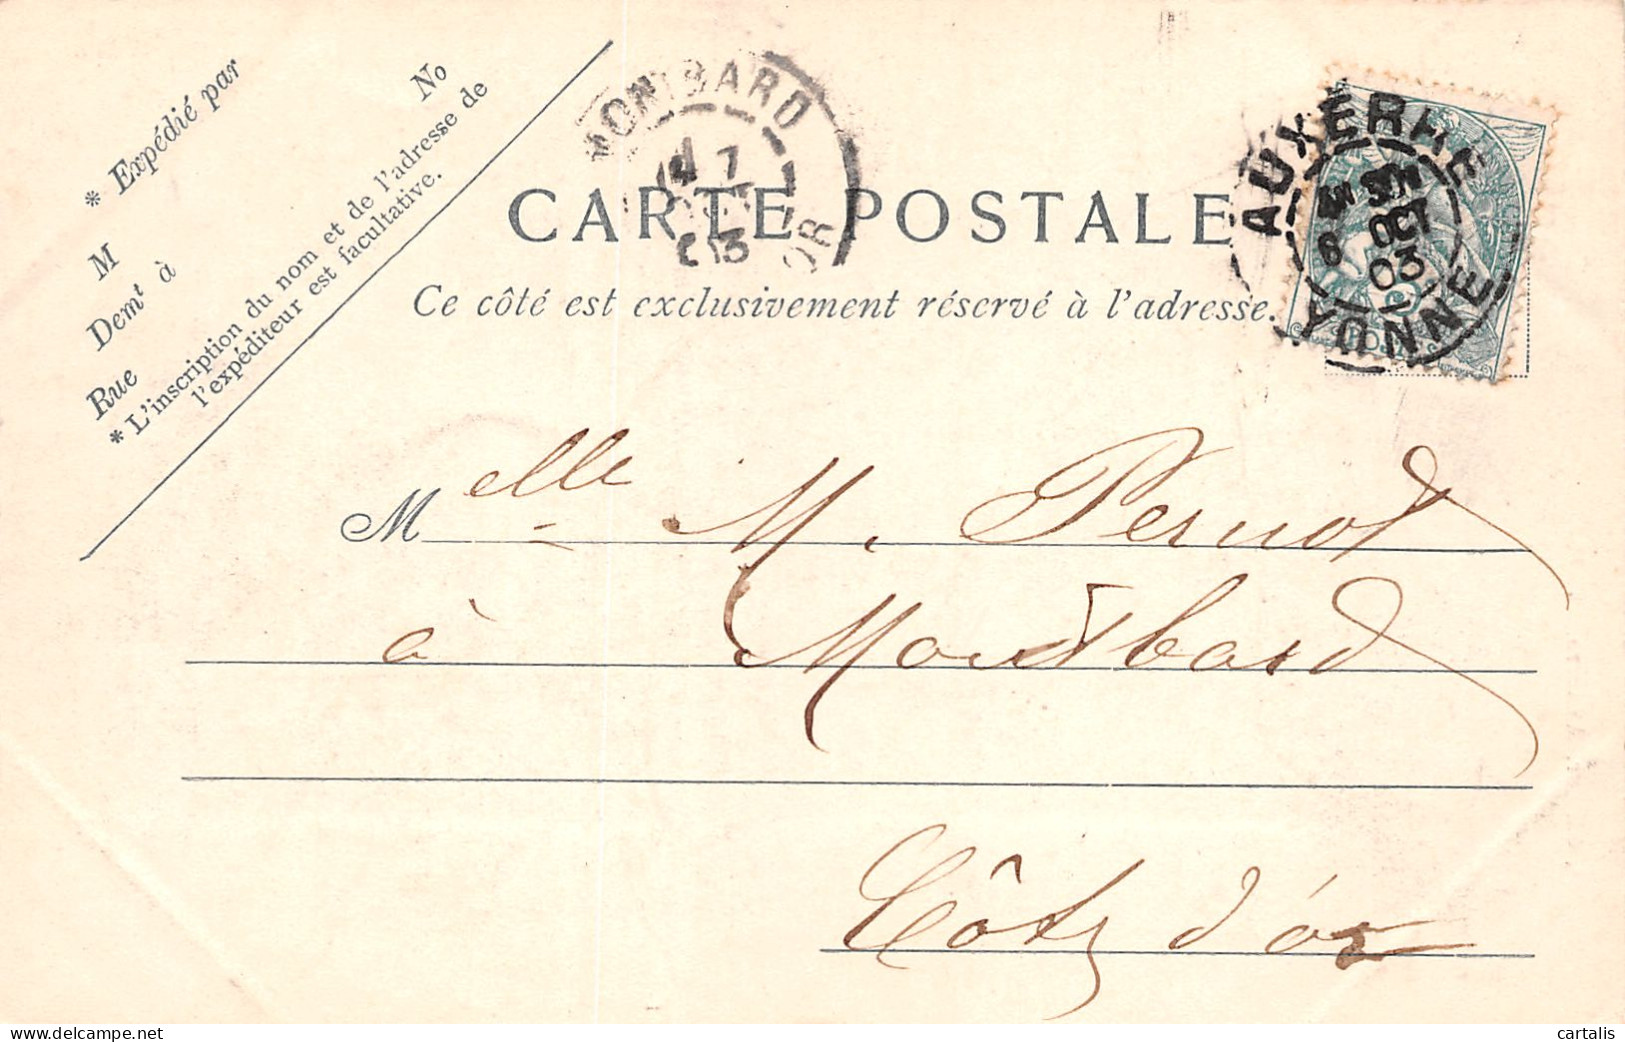 * Expédié par
M
Demt à
Rue
No
* L'inscription du nom et de l'adresse de
l'expéditeur est facultative.
MONTBARD
7
OR
CARTE POSTALE
AUXERRE
6 OCT
03
YONNE
Ce côté est exclusivement réservé à l'adresse.
Melle M. Pernot
à Montbard
Côte d'or
cartalis